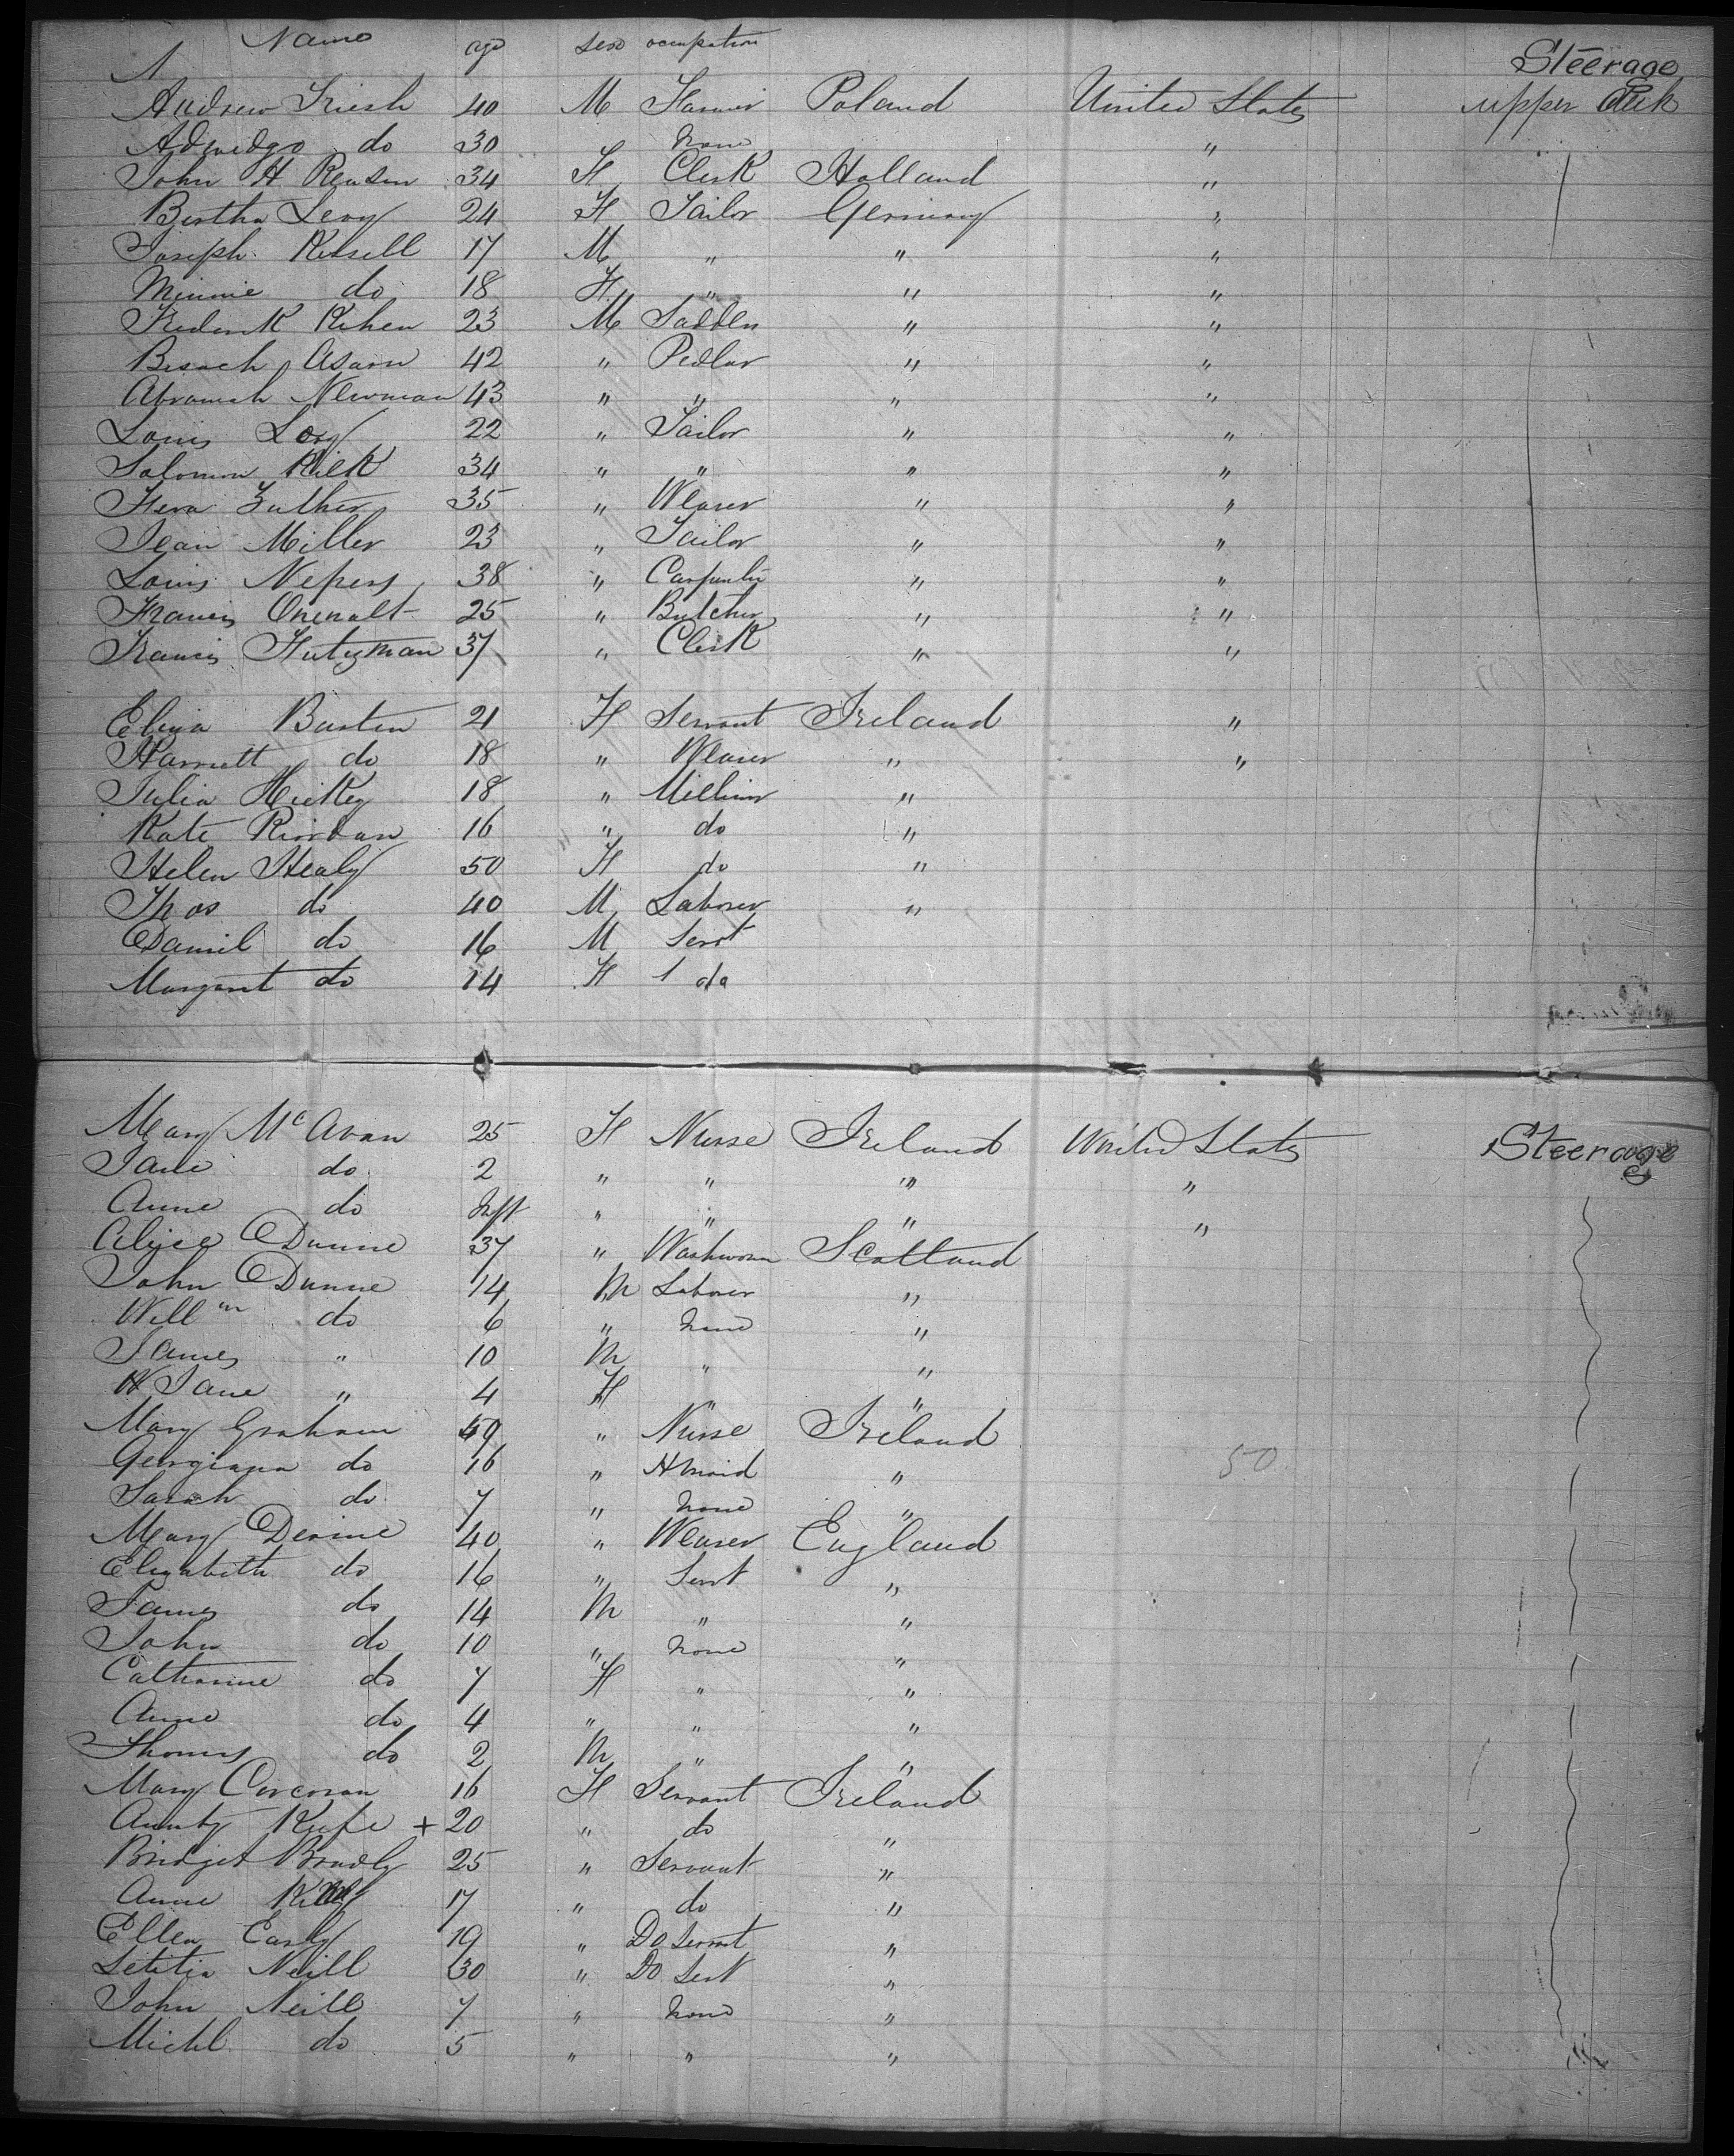 Name age sex occupation Steerage
Andrew Friesh 40 M Farmer Poland United States upper Deck
Adwidgo do 30 none "
John H Reasen 34 F Clerk Holland "
Bertha Levy 24 F Tailor Germany "
Joseph Kessell 17 M " " "
Minnie do 18 F " " "
Frederik Kehen 23 M Saddler " "
Besach Asarn 42 " Pedlar " "
Abramah Newman 43 " " " "
Louis Levy 22 " Tailor " "
Solomon Kilk 34 " " " "
35 " Weaver " "
Jean Miller 23 " Tailor " "
Louis Nepers 38 " Carpenter " "
Francis 25 " Butcher " "
Francis Hutzman 37 " Clerk " "
Eliza Busten 21 F Servant Ireland "
Harriett do 18 " Weaver " "
Julia Hickey 18 " Milliner "
Kate Riordan 16 " do "
Helen Healy 50 F do "
Thos do 40 M Laborer "
Daniel do 16 M Servt
Margaret do 14 F 1 do
Mary McAvan 25 F Nurse Ireland United States Steerage
Jane do 2 " " " "
Anne do Inft " " " "
Aliyce Dunne 37 " Washwom Scotland
John Dunne 14 M Laborer "
Willm do 6 " none "
James " 10 M " "
M Jane " 4 F " "
Mary Graham 49 " Nurse Ireland
Georgiana do 16 " H maid " 50
Sarah do 7 " none "
Mary Devine 40 " Weaver England
Elizabeth do 16 " Servt "
James do 14 M " "
John do 10 " none "
Catharine do 7 F " "
Anne do 4 " " "
Thomas do 2 M " "
Mary Corcoran 16 F Servant Ireland
Aunty Keefe + 20 " do "
Bridget Bradly 25 " Servant "
Anne 17 " do "
Ellen Early 19 " Do Servnt "
Letitia Neill 30 " Do Sert "
John Neill 7 " none "
Michl do 5 " " "